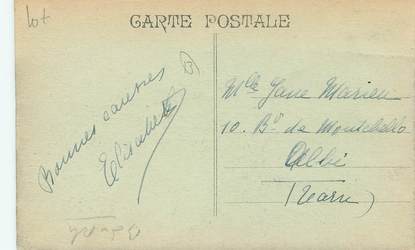 Lot
CARTE POSTALE
Bonnes caresses
Elisabeth
Mlle Jane Marien
10. Bd de Montebello
Albi
(Tarn)